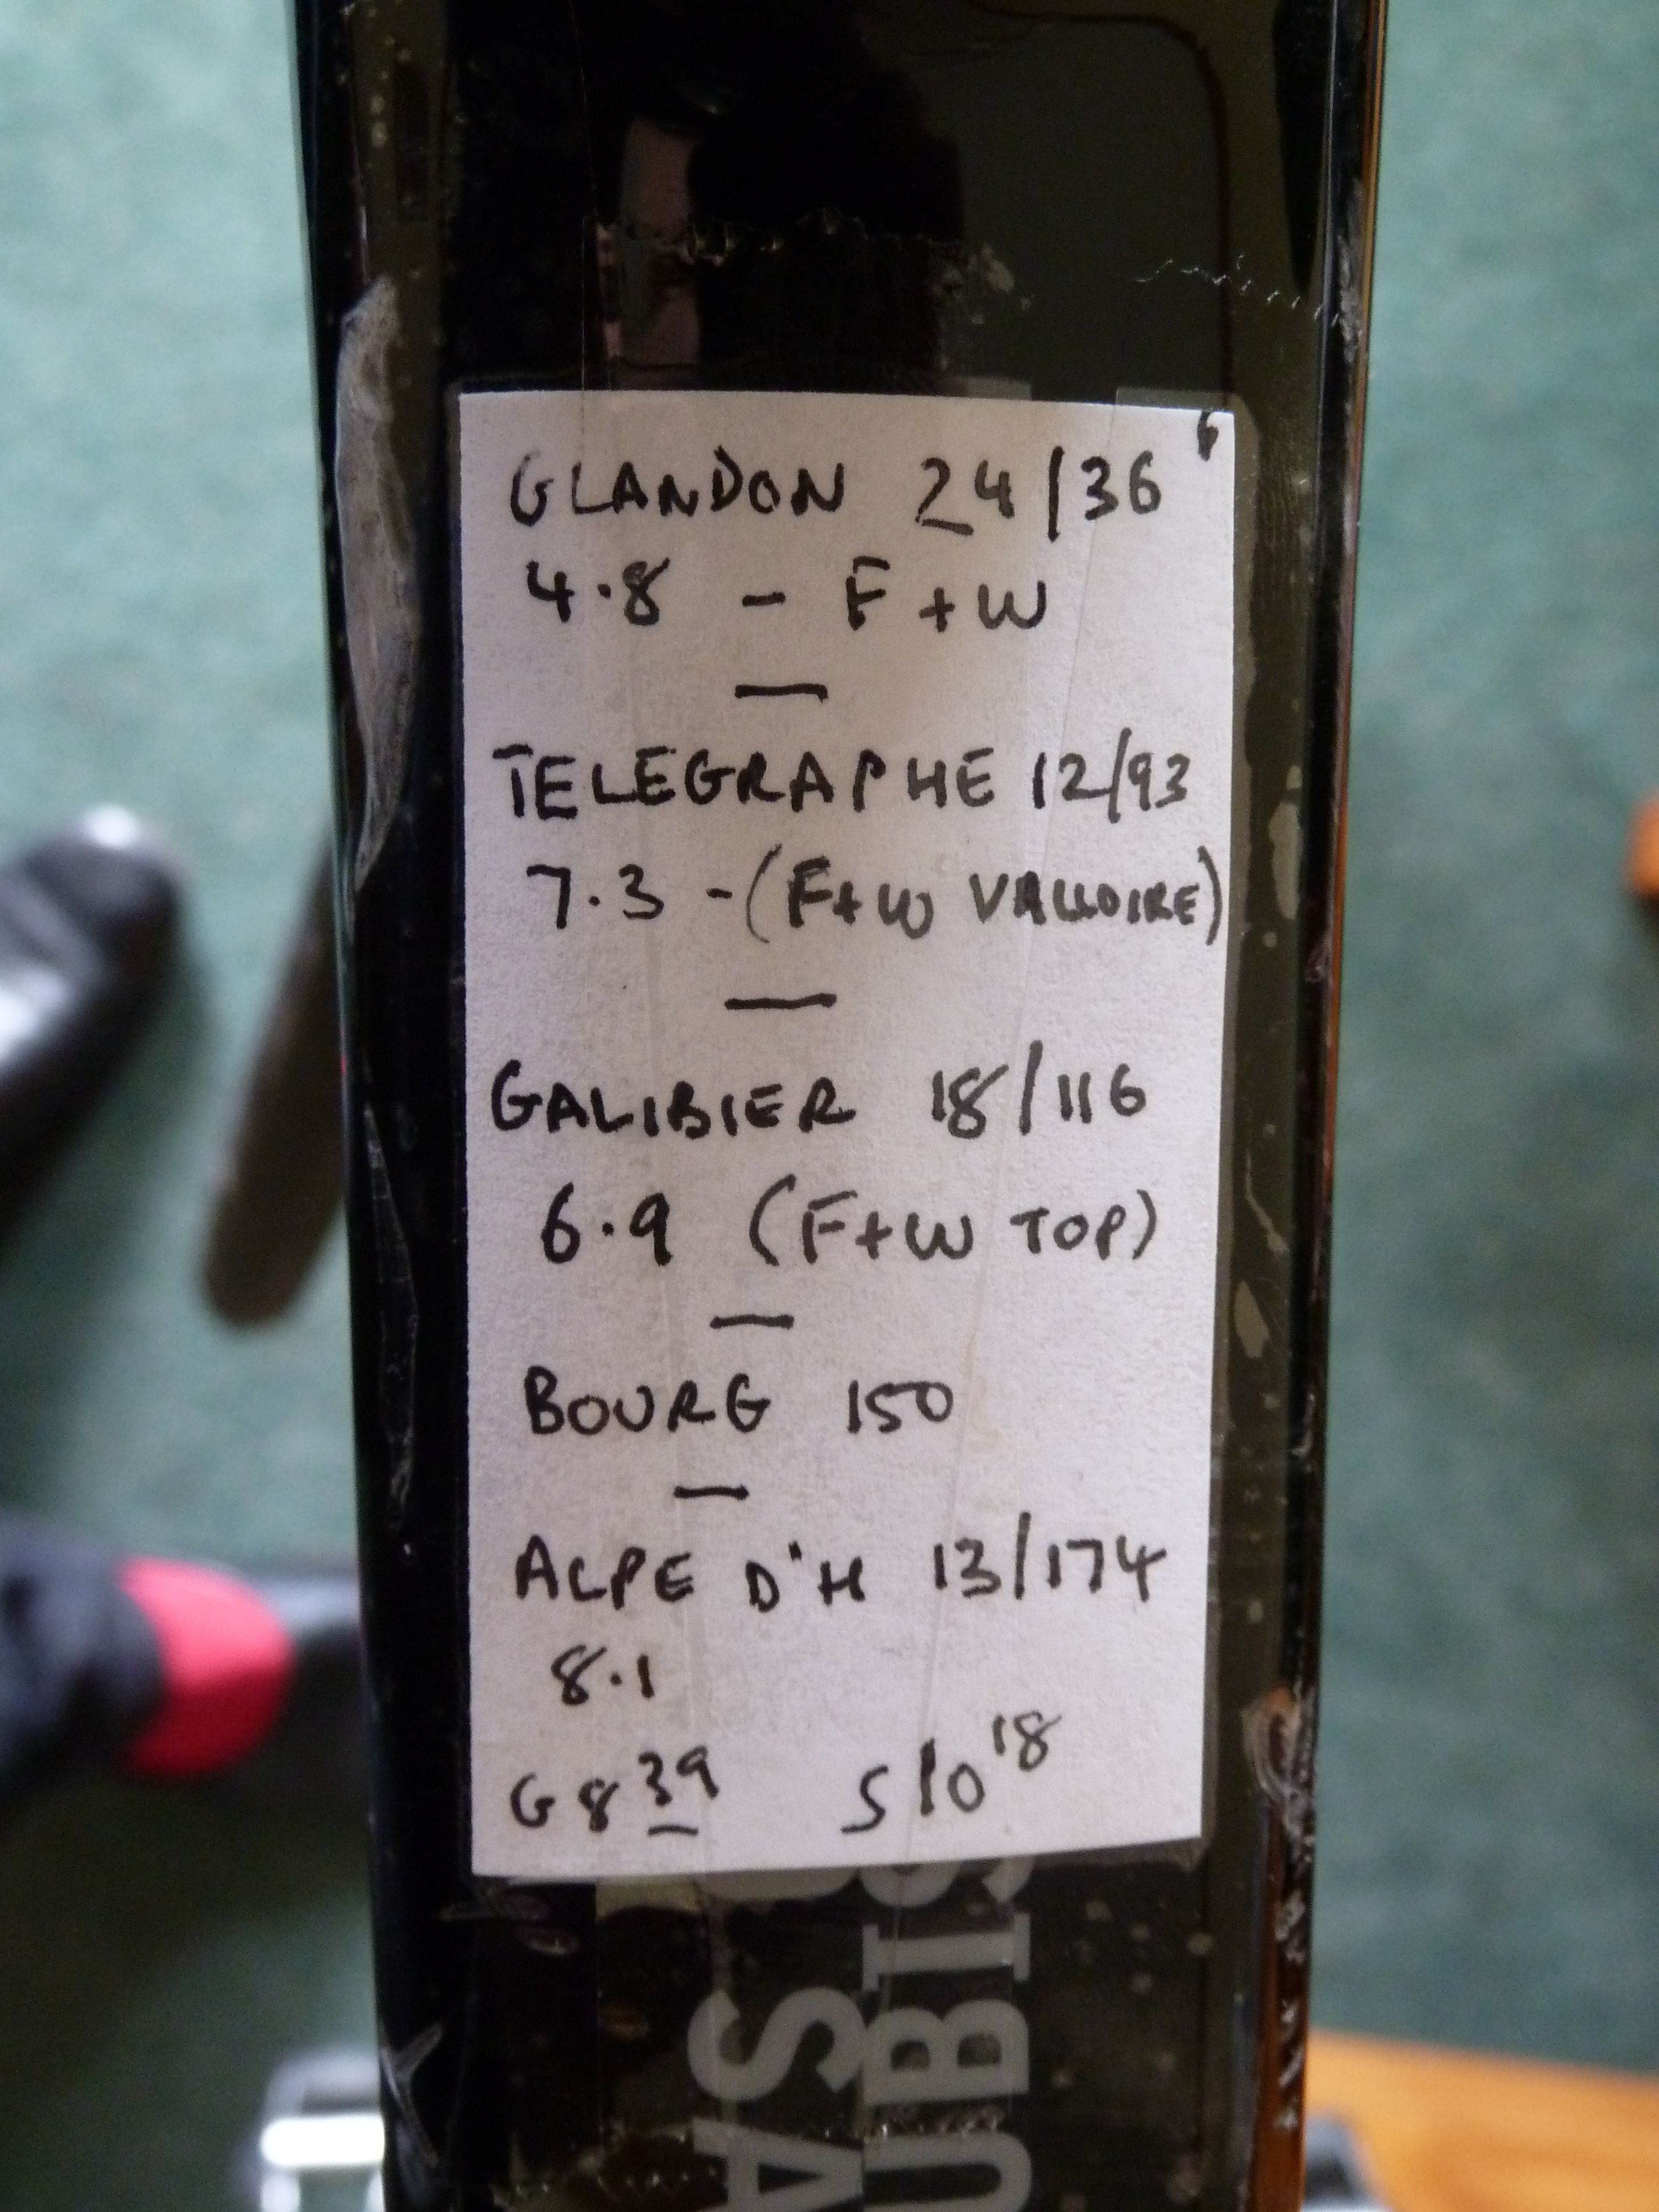 GLANDON 24/36
4.8 - F+W
—
TELEGRAPHE 12/93
7.3 - (F+W VALLOIRE)
—
GALIBIER 18/116
6.9 (F+W TOP)
—
BOURG 150
—
ALPE D'H 13/174
8.1
G 8 39 S 10 18